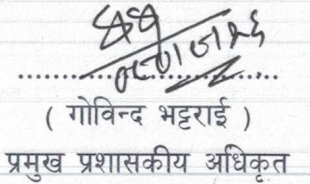 ( गोविन्द भट्टराई )
प्रमुख प्रशासकीय अधिकृत